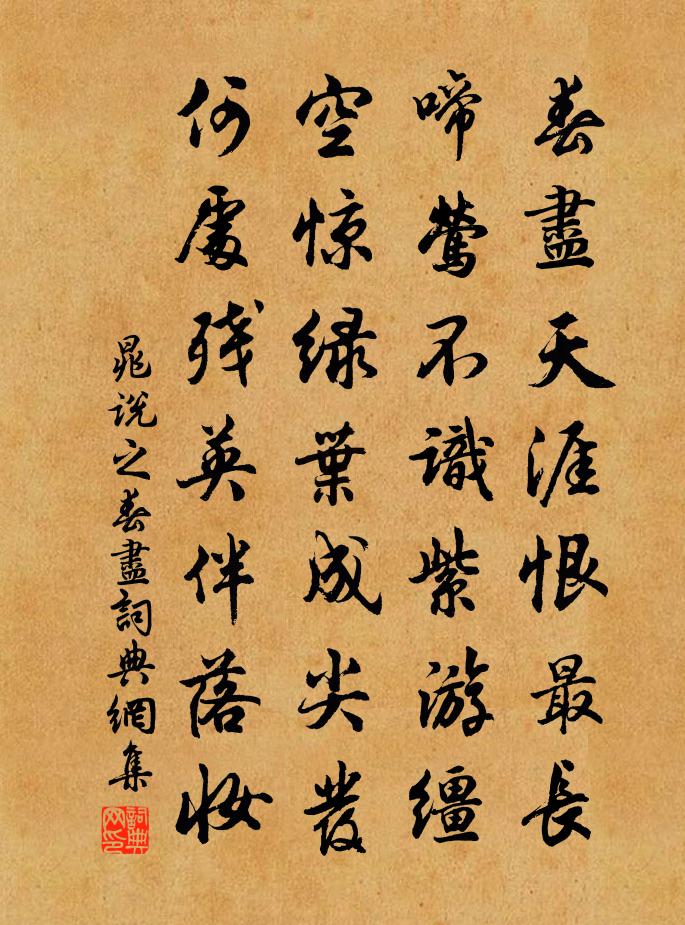 春盡天涯恨最長
啼鶯不識紫游繮
空惊緑葉成尖發
何處残英伴落妝
晁说之春盡詞典網集
詞典网印